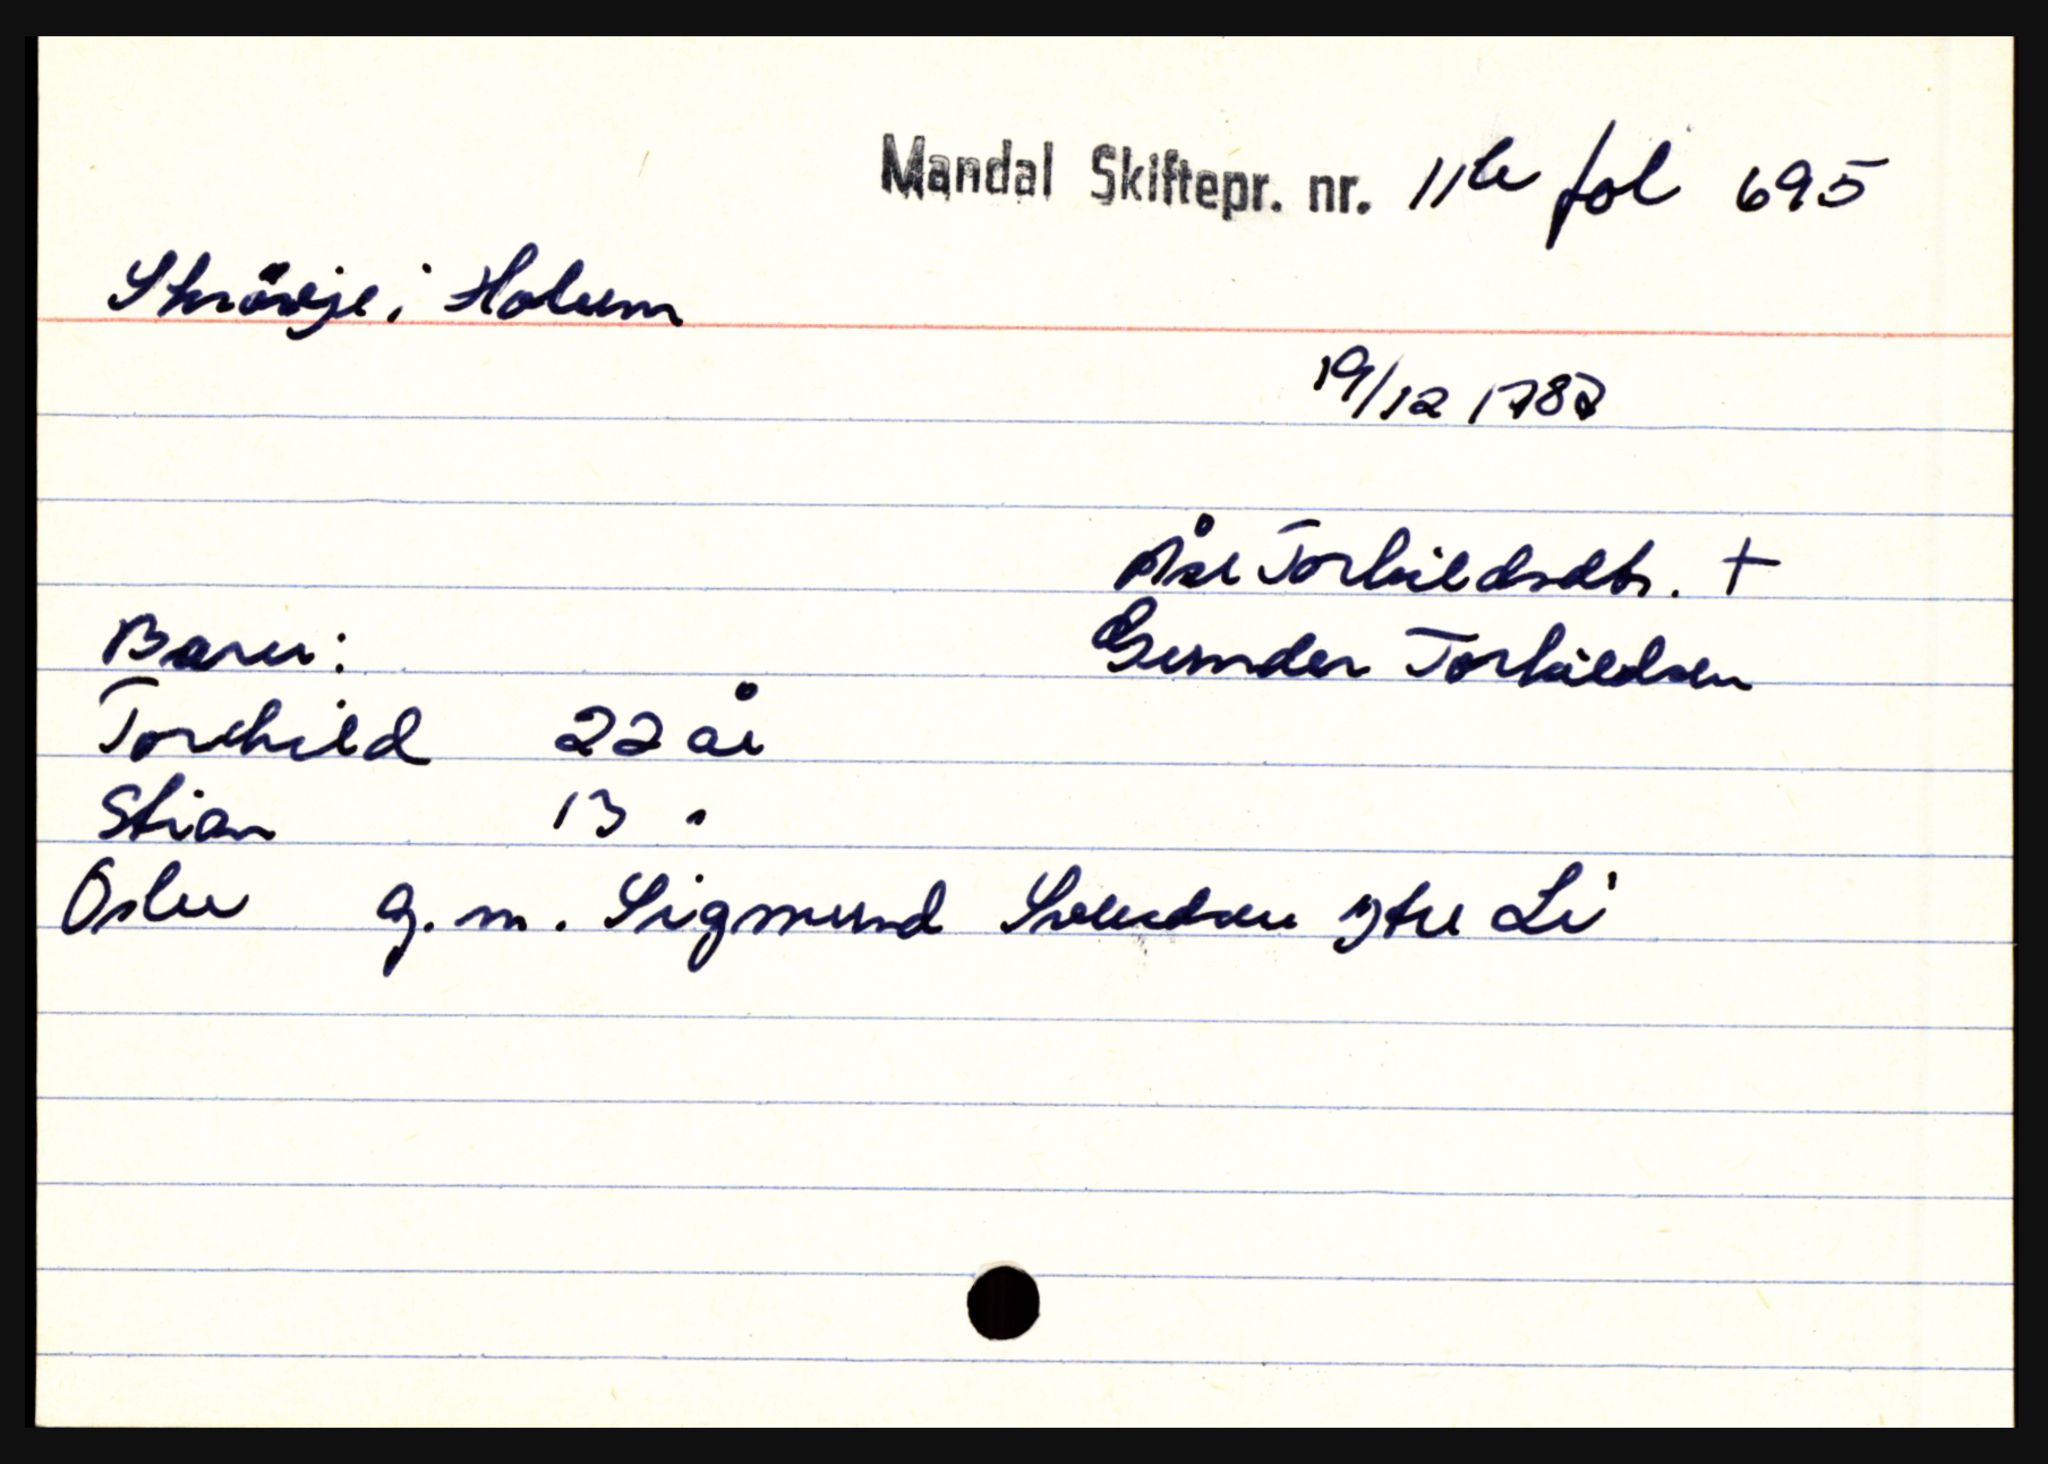 Mandal Skiftepr. nr. 11b fol 695
Skrövje i Holum
19/12 1787
Åse Torkildsdtr. +
Gunder Torkildsen
Barn:
Torchild 22 år
Stian 13 "
Oslu g.m. Sigmund Svendsen ytre Li